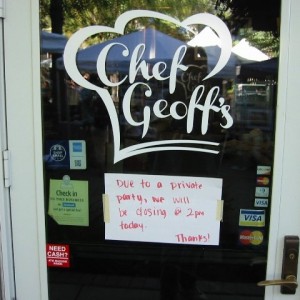 Chef
Geoff's
Due to a private
party, we will
be closing @ 2pm
today.
Thanks!
Check in
NEED
CASH?
VISA
VISA